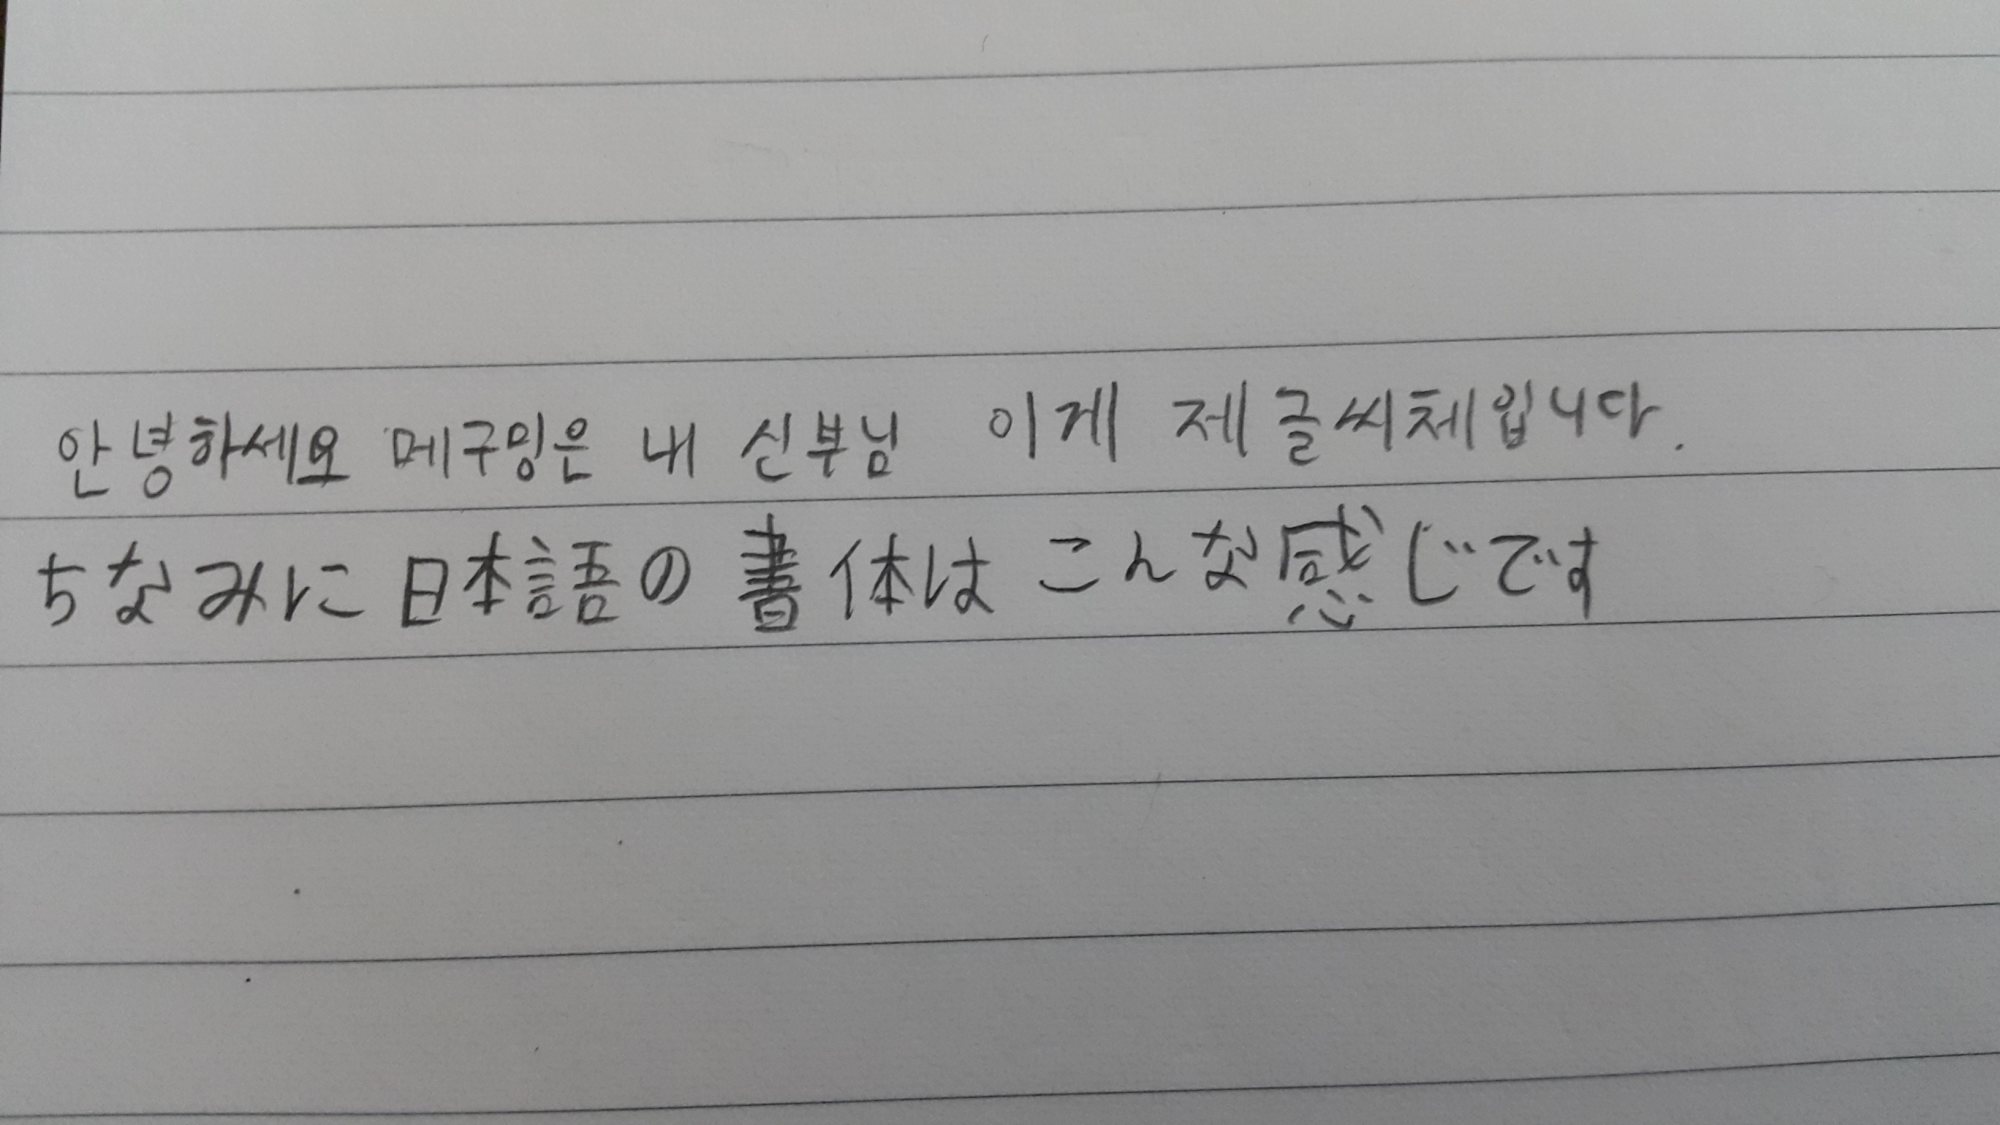 안녕하세요 메구밍은 내 신부님 이게 제 글씨체입니다.
ちなみに日本語の書体はこんな感じです